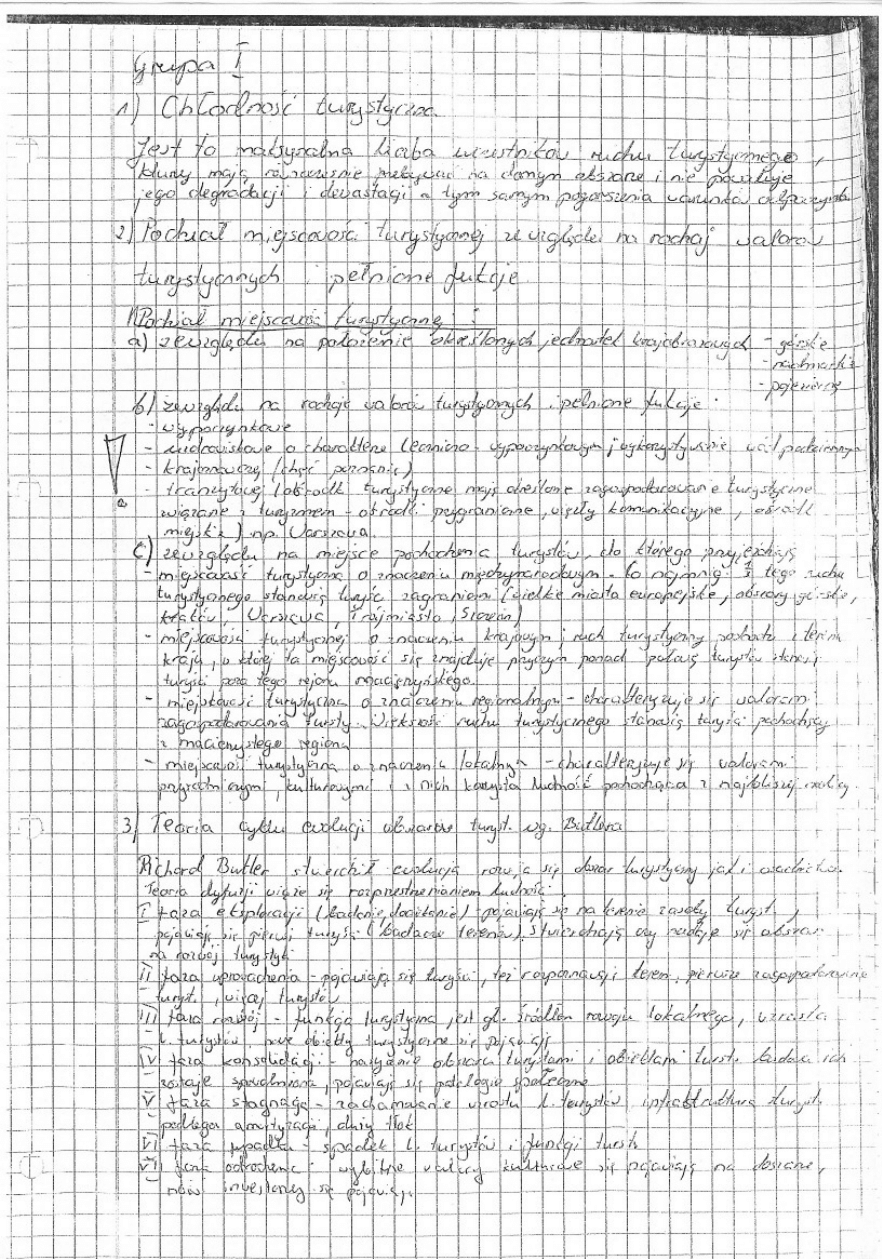 Grupa I
1) Chłodność turystyczna
Jest to maksymalna liczba uczestników ruchu turystycznego,
którzy mają równocześnie przebywać na danym obszarze i nie powoduje
jego degradacji i devastacji a tym samym pogorszenia warunków odpoczynku
2) Podział miejscowości turystycznej ze względu na rodzaj walorów
turystycznych i pełnione funkcje
Podział miejscowości turystycznej:
a) ze względu na położenie określonych jednostek krajobrazowych - górskie
- nadmorskie
- pojezierne
b) ze względu na rodzaje walorów turystycznych i pełnione funkcje:
- wypoczynkowe
- uzdrowiskowe o charakterze leczniczo-wypoczynkowym, wykorzystywanie wód podziemnych
- krajoznawczej (chęć poznanie)
- tranzytowej (ośrodki turystyczne mają określone zagospodarowanie turystyczne
związane z turyzmem - ośrodki przygraniczne, węzły komunikacyjne, ośrodki
miejskie) np. Warszawa
c) ze względu na miejsce pochodzenia turystów, do którego przyjeżdżają
- miejscowość turystyczna o znaczeniu międzynarodowym - co najmniej tego ruchu
turystycznego stanowią turyści zagraniczni (wielkie miasta europejskie, obszary górskie,
Kraków, Warszawa, Trójmiasto,
- miejscowości turystycznej o znaczeniu krajowym, ruch turystyczny pochodzi z terenu
kraju, w której ta miejscowość się znajduje przyczym ponad połowę turystów stanowią
turyści poza tego rejonu macierzyńskiego.
- miejscowość turystyczna o znaczeniu regionalnym - charakteryzuje się walorami
zagospodarowania turysty. Większość ruchu turystycznego stanowią turyści pochodzący
z macierzystego regionu
- miejscowość turystyczna o znaczeniu lokalnym - charakteryzuje się walorami
przyrodniczymi, kulturowymi i z nich korzysta ludność pochodząca z najbliższej okolicy.
3) Teoria cyklu ewolucji obszarów turyst. wg. Butlera
Richard Butler stwierdził ewolucja rozwija się obszar turystyczny jak i
Teoria dyfuzji wiąże się rozprzestrzenianiem ludności.
I faza eksploracji (badanie, docieranie) - pojawiają się na terenie zasoby turyst.,
pojawiają się pierwsi turyści (badacze terenów), stwierdzają czy nadaje się obszar
na rozwój turystyki
II faza wprowadzenia - pojawiają się turyści, też rozpoznawają teren, pierwsze zagospodarowanie
turyst., więcej turystów
III faza rozwój - funkcja turystyczna jest gł. źródłem rozwoju lokalnego, wzrasta
l. turystów, nowe obiekty turystyczne się pojawiają
IV faza konsolidacji - nasycenie obszaru turystami i obiektami turst. budowa ich
zostaje spowolniona, pojawiają się patologie społeczne
V faza stagnacja - zachamowanie wzrostu l. turystów, infrastruktura turyst.
podlega amortyzacji, duży tłok
VI faza upadku - spadek l. turystów i funkcji turst.
VII faza odrodzenia - wybitne walory kulturowe się pojawiają na obszarze,
nowi inwestorzy się pojawiają.